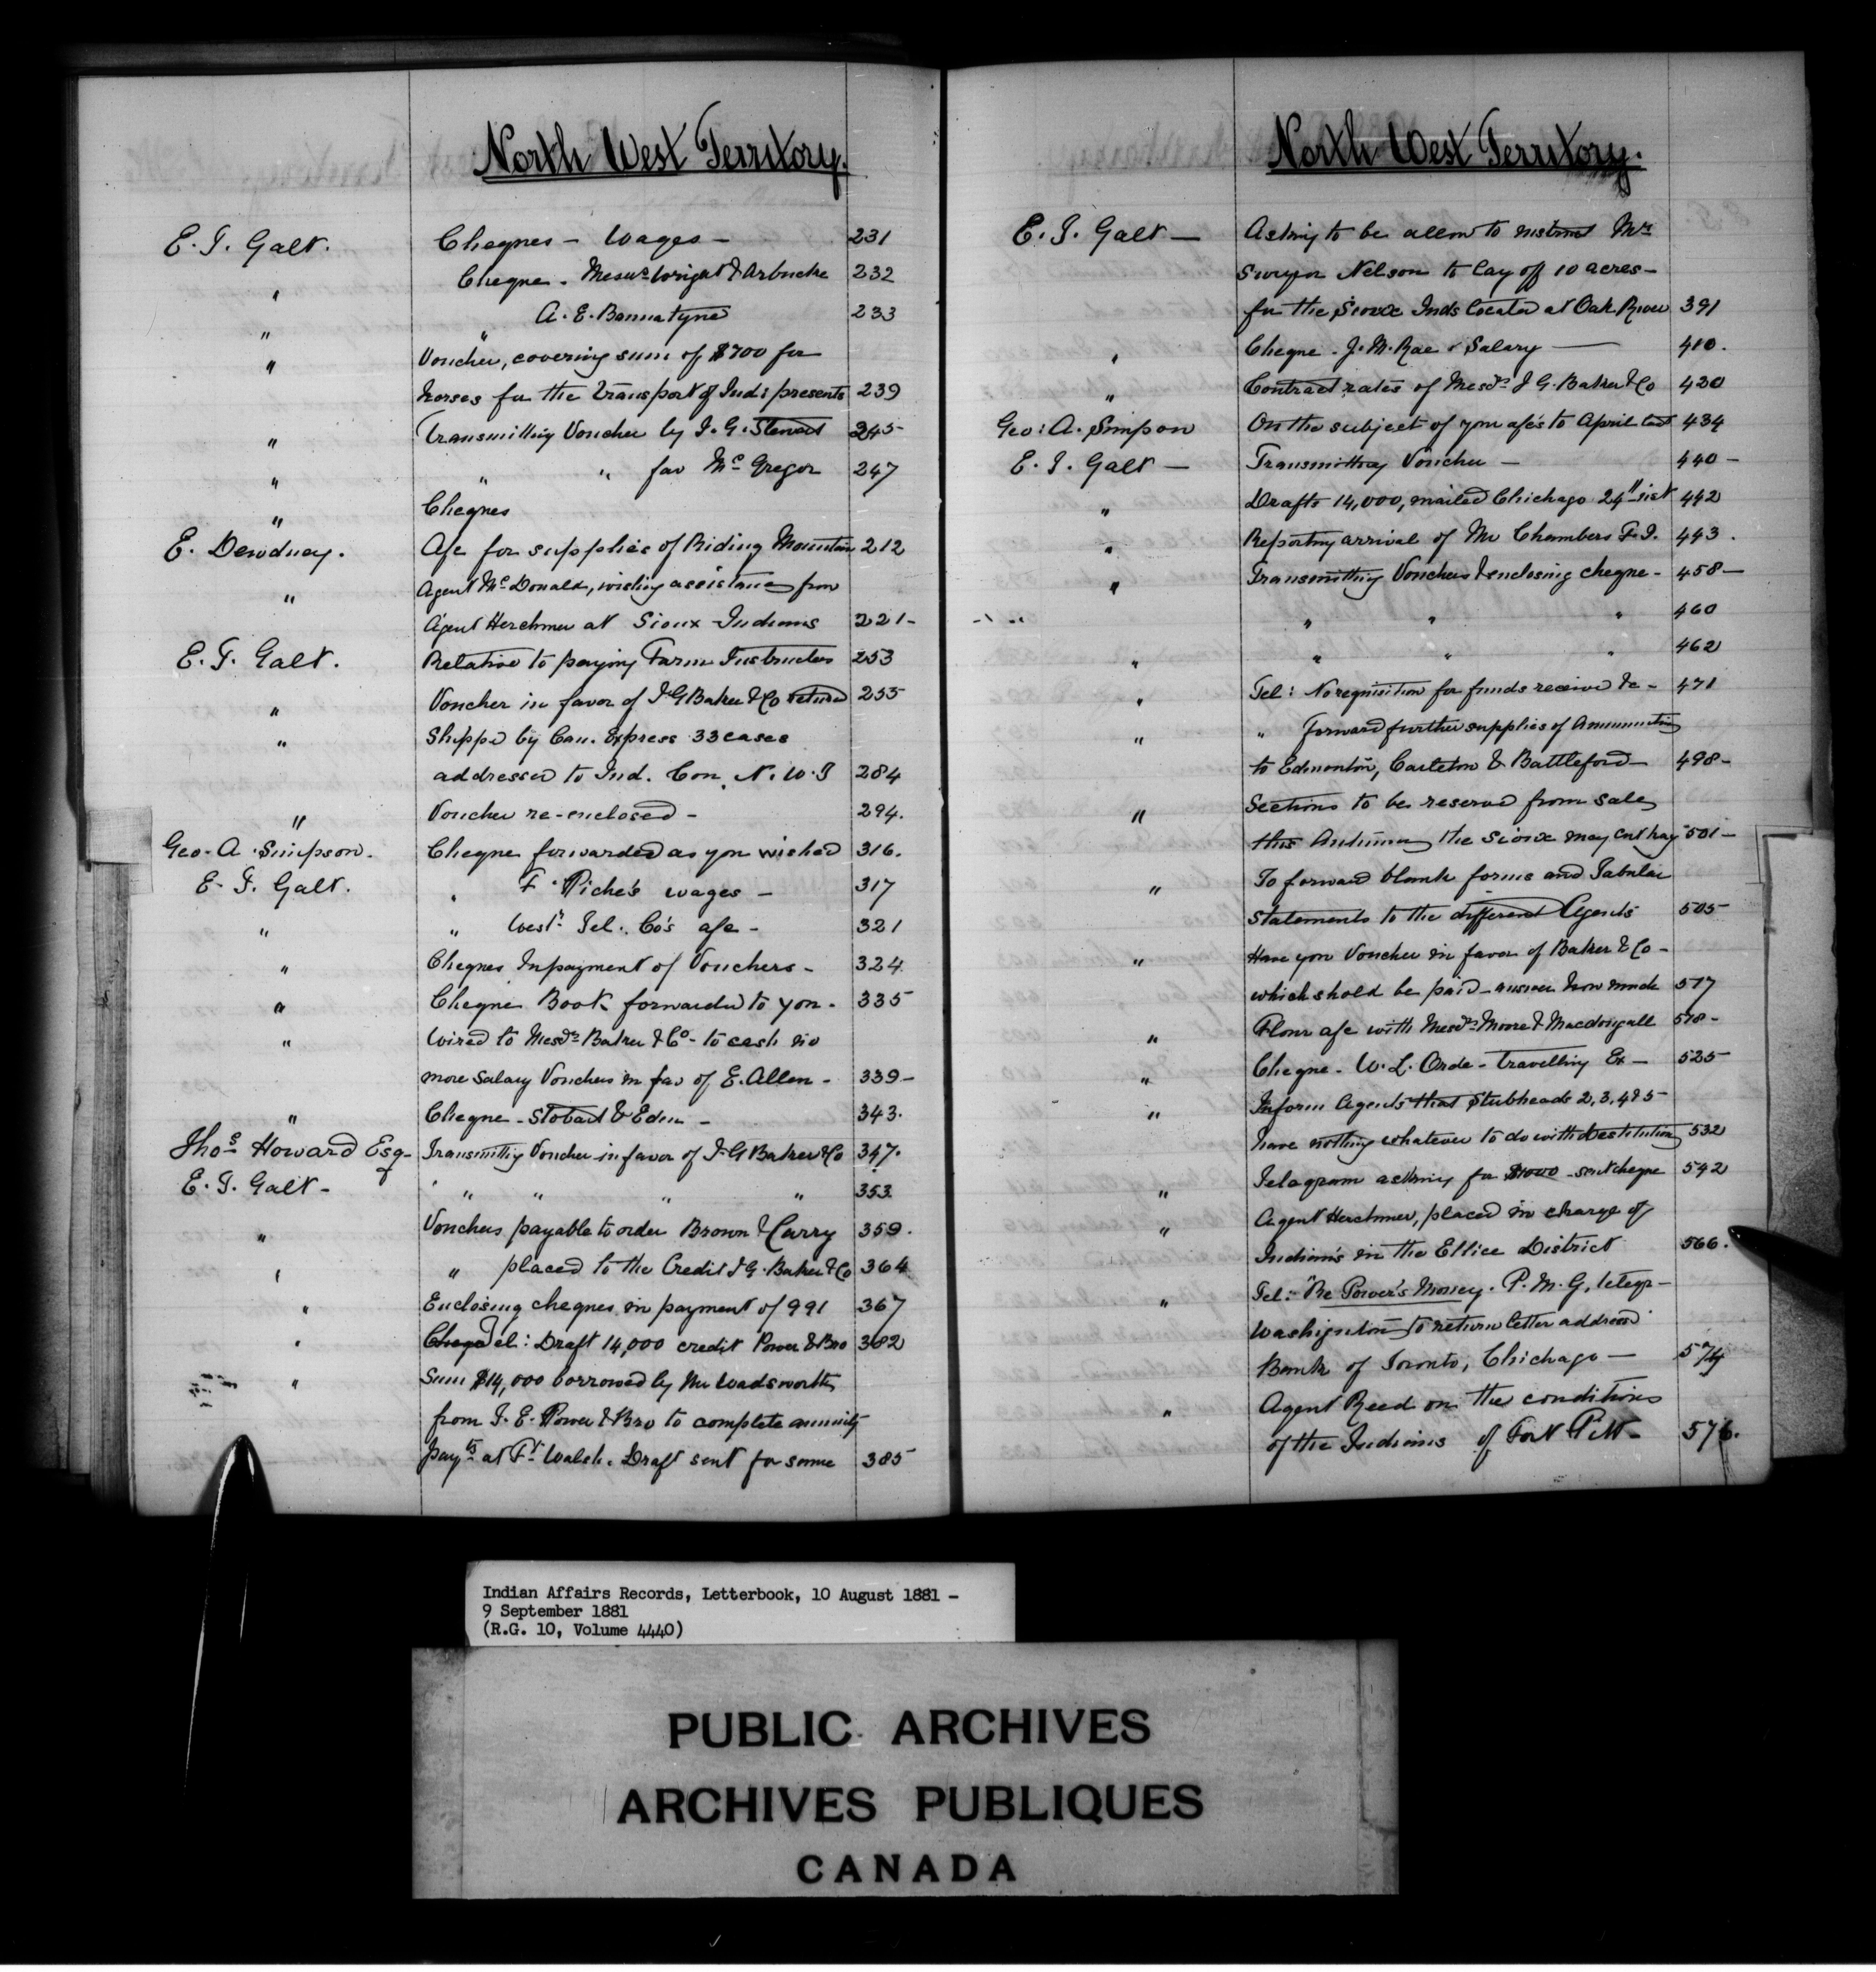 North West Territory.
E. T. Galt. Cheques - Wages - 231
" Cheque - Messrs Wright & Arbuckle 232
" " A. E. Bannatyne 233
" Voucher, covering sum of $700 for
horses for the transport of Inds presents 239
" Transmitting Voucher by J. G. Stewart 245
" " " fav McGregor 247
" Cheques
E. Dewdney. A/c for supplies of Riding Mountain 212
" Agent McDonald, wishing assistance from
Agent Herchmer at Sioux Indians 221-
E. T. Galt. Relative to paying Farm Instructors 253
" Voucher in favor of I G Baker & Co return 255
" Shipped by Can. Express 33 cases
addressed to Ind. Com. N. W. T 284
" Voucher re-enclosed - 294.
Geo. A. Simpson. Cheque forwarded as you wished 316.
E. T. Galt. " F. Piche's wages - 317
" " West. Tel. Co's a/c - 321
" Cheques In payment of Vouchers - 324
" Cheque Book forwarded to you - 335
" Wired to Messrs Baker & Co - to cash no
more salary Vouchers in fav of E. Allen - 339-
" Cheque - Stobart & Eden - 343.
Thos Howard Esq- Transmitting Voucher in favor of I G Baker & Co 347.
E. T. Galt - " " " " 353.
" Vouchers payable to order Brown & Curry 359.
" " placed to the Credit I G. Baker & Co 364
" Enclosing cheques in payment of 991 367
" Tel: Draft 14,000 credit Power & Bro 382
" Sum $14,000 borrowed by Mr Wadsworth
from T. E. Power & Bro to complete annuity
payts at Ft Walsh. Draft sent for same 385
North West Territory.
E. T. Galt - Asking to be allow to instruct Mr
Surveyor Nelson to lay off 10 acres -
for the Sioux Inds located at Oak River 391
" Cheque - J. M. Rae - Salary - 410.
" Contract rates of Messrs I G. Baker & Co 430
Geo: A. Simpson On the subject of your a/c's to April last 434
E. T. Galt - Transmitting Voucher - 440-
" Drafts 14,000, mailed Chicago 24th inst 442
" Reporting arrival of Mr Chambers F. I. 443.
" Transmitting Vouchers & enclosing cheque - 458-
" " " " 460
" " " " 462
" Tel: No requisition for funds received &c - 471
" " Forward further supplies of Ammunition
to Edmonton, Carleton & Battleford - 498-
" Sections to be reserved from sale,
this Autumn, the Sioux may cut hay 501-
" To forward blank forms and Tabular
statements to the different Agents 505
" Have you Voucher in favor of Baker & Co -
which shold be paid - answer how much 517
" Flour a/c with Messrs Moore & Macdougall 518-
" Cheque - W. L. Orde - Travelling Ex - 525
" Inform Agents that Stubheads 2, 3, 4 & 5 -
have nothing whatever to do with Destitution 532
" Telegram asking for $1000 - sent cheque 542
" Agent Herchmer, placed in charge of
Indian's in the Ellice District 566.
" Tel: "Re Power's Money. P. M. G. telegr -
Washington to return letter addressed
Bank of Toronto, Chicago - 574
" Agent Reed on the conditions
of the Indians of Fort Pitt - 576.
Indian Affairs Records, Letterbook, 10 August 1881 -
9 September 1881
(R.G. 10, Volume 4440)
PUBLIC ARCHIVES
ARCHIVES PUBLIQUES
CANADA